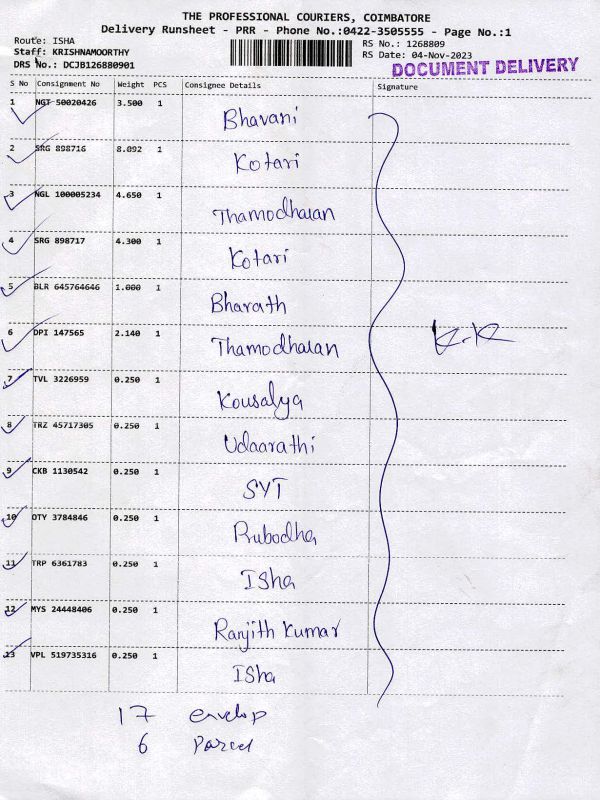 THE PROFESSIONAL COURIERS, COIMBATORE
Delivery Runsheet - PRR - Phone No.:0422-3505555 - Page No.:1
Route: ISHA
RS No.: 1268809
Staff: KRISHNAMOORTHY
RS Date: 04-Nov-2023
DRS No.: DCJB126880901
DOCUMENT DELIVERY
S No Consignment No Weight PCS Consignee Details Signature
1 NGT 50020426 3.500 1 Bhavani
2 SRG 898716 8.092 1 Kotari
3 NGL 100005234 4.650 1 Thamodharan
4 SRG 898717 4.300 1 Kotari
5 BLR 645764646 1.000 1 Bharath
6 DPI 147565 2.140 1 Thamodharan
K.K
7 TVL 3226959 0.250 1 Kousalya
8 TRZ 45717305 0.250 1 Udaarathi
9 CKB 1130542 0.250 1 SYT
10 OTY 3784846 0.250 1 Prubodha
11 TRP 6361783 0.250 1 ISha
12 MYS 24448406 0.250 1 Ranjith Kumar
13 VPL 519735316 0.250 1 ISha
17 envelop
6 Parcel